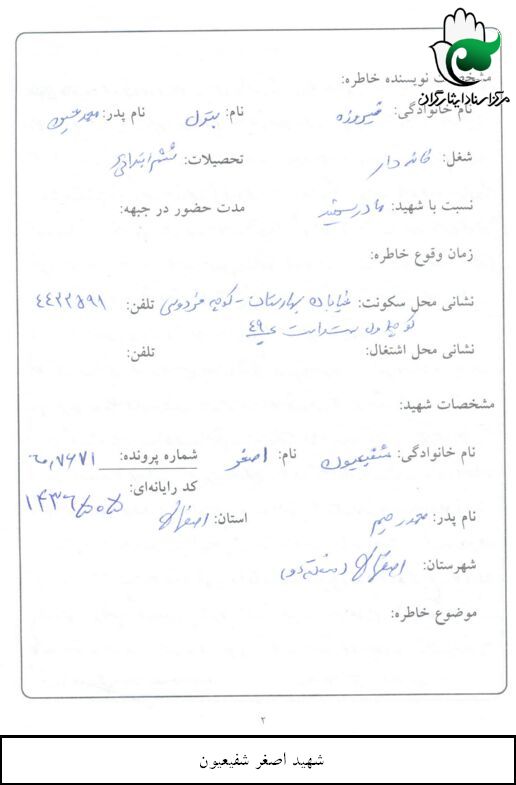 مرکز اسناد ایثارگران
مشخصات نویسنده خاطره:
نام خانوادگی: فیروزه نام: بتول نام پدر: محمد حسین
شغل: خانه دار تحصیلات: ششم ابتدائی
نسبت با شهید: مادر شهید مدت حضور در جبهه:
زمان وقوع خاطره:
نشانی محل سکونت: خیابان بهارستان - کوچه فردوسی تلفن: ٤٤٢٢٥٩١
کوچه اول سمت راست پ ٤٩
نشانی محل اشتغال: تلفن:
مشخصات شهید:
نام خانوادگی: شفیعیون نام: اصغر شماره پرونده: ٧٦٧١
کد رایانه‌ای:
نام پدر: محمد رحیم استان: اصفهان
شهرستان: اصفهان (منطقه دو)
موضوع خاطره:
٢
شهید اصغر شفیعیون